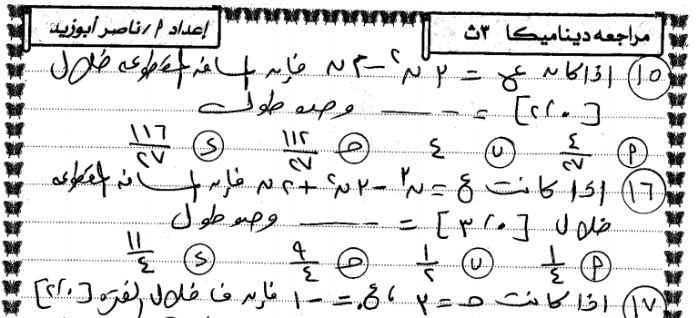 مراجعه ديناميكا ٣ث
إعداد م/ناصر أبوزيد
(١٥) اذا كانه ع = ٢ن٢ - ٣ن فإنه المسافه المقطوعه خلال
[٢،٠] = ــــ وحده طول
(P) ٤/٢٧ (ب) ٤ (ح) ١١٢/٢٧ (s) ١١٦/٢٧
(١٦) اذا كانت ع = ن٣ - ٣ن٢ + ٢ن فإنه المسافه المقطوعه
خلال [٣،٠] = ــــ وحده طول
(P) ١/٤ (ب) ١/٢ (ح) ٩/٤ (s) ١١/٤
(١٧) اذا كانت ح = ٢ ، ع. = -١ فإنه ف خلال الفتره [٢،٠]